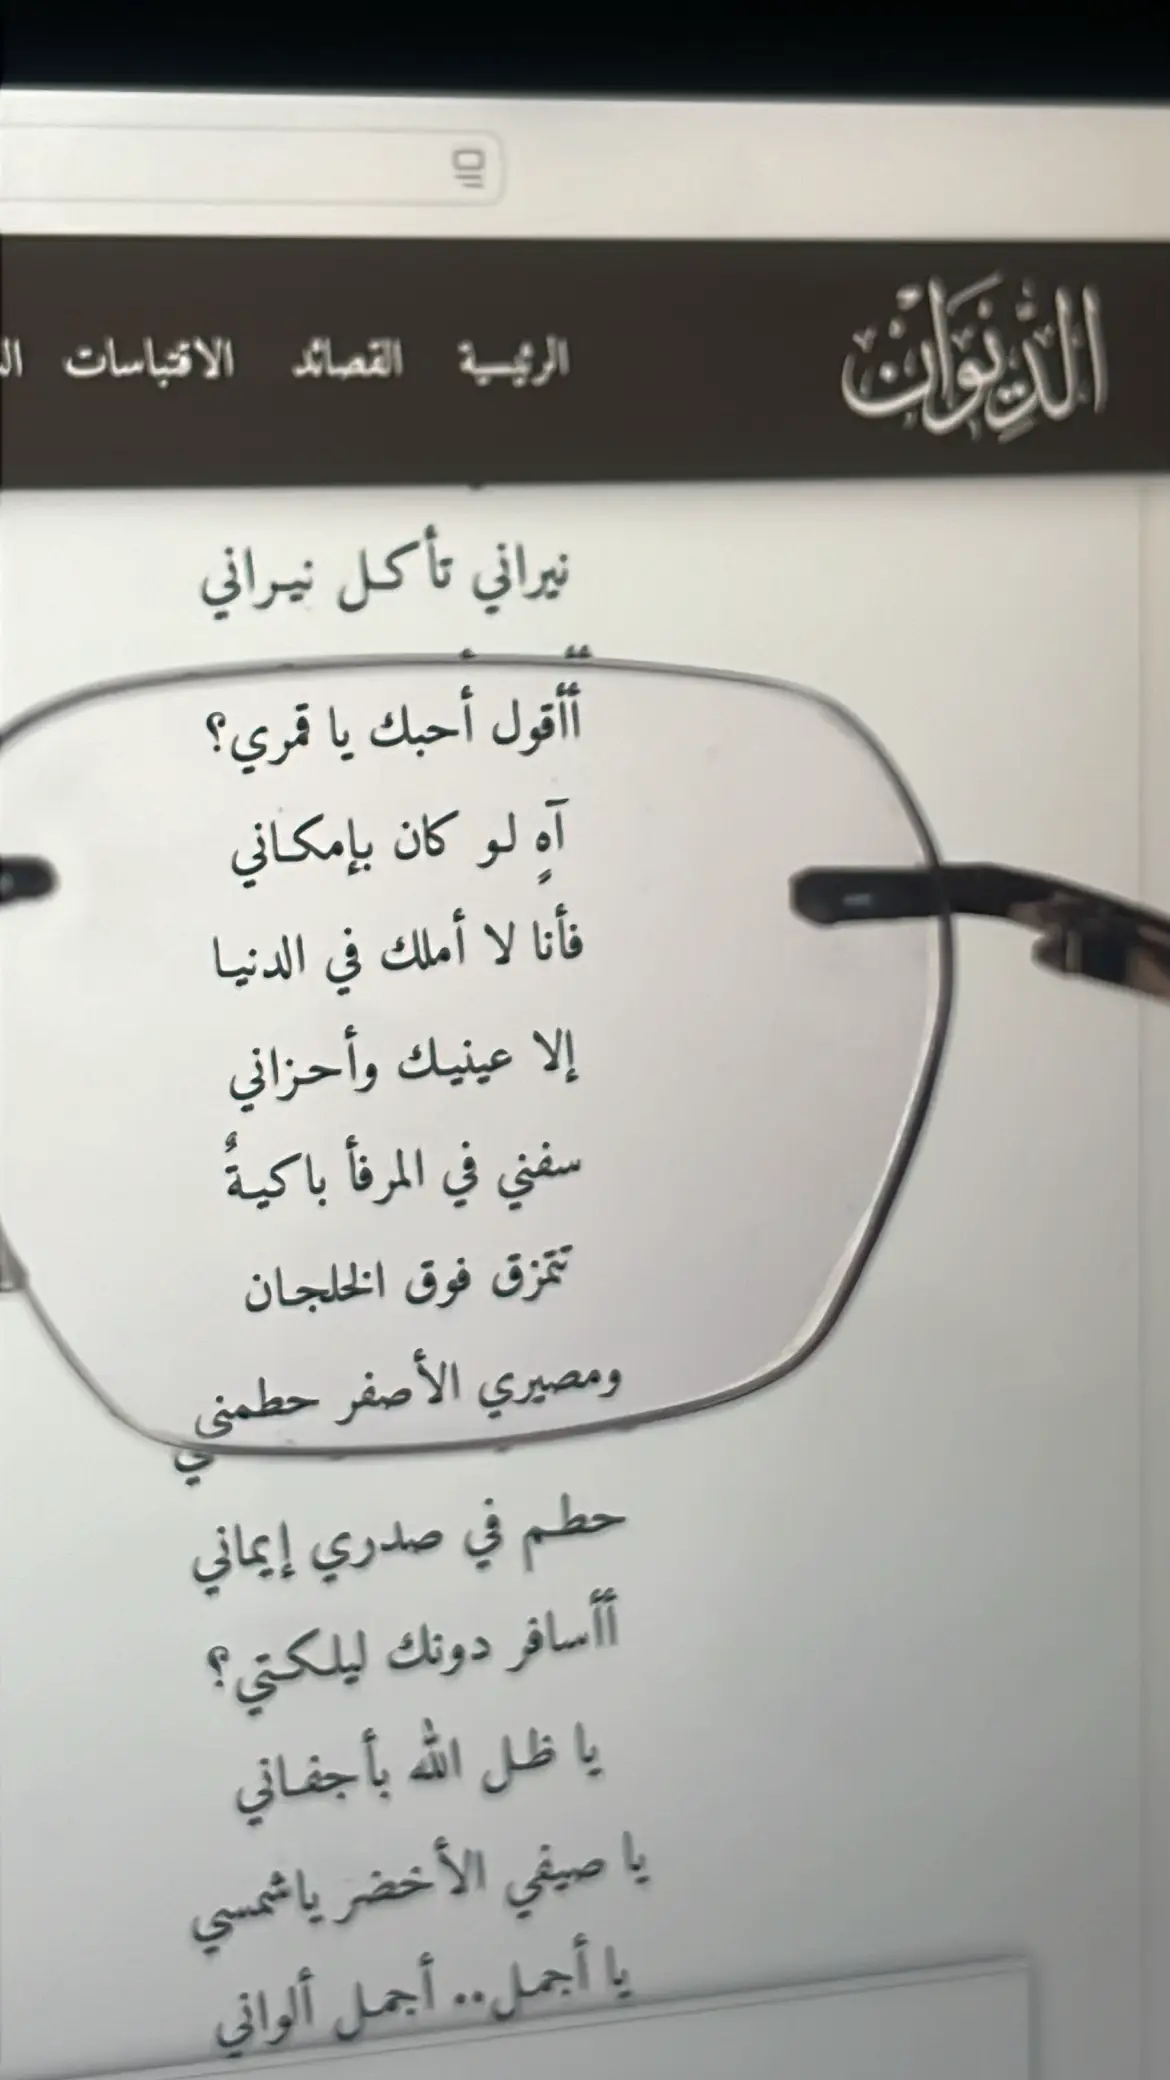 الديوان
الرئيسية القصائد الاقتباسات
نيراني تأكل نيراني
أأقول أحبك يا قمري؟
آهٍ لو كان بإمكاني
فأنا لا أملك في الدنيا
إلا عينيك وأحزاني
سفني في المرفأ باكيةٌ
تتمزق فوق الخلجان
ومصيري الأصفر حطمني
حطم في صدري إيماني
أأسافر دونك ليلكتي؟
يا ظل الله بأجفاني
يا صيفي الأخضر ياشمسي
يا أجمل.. أجمل ألواني